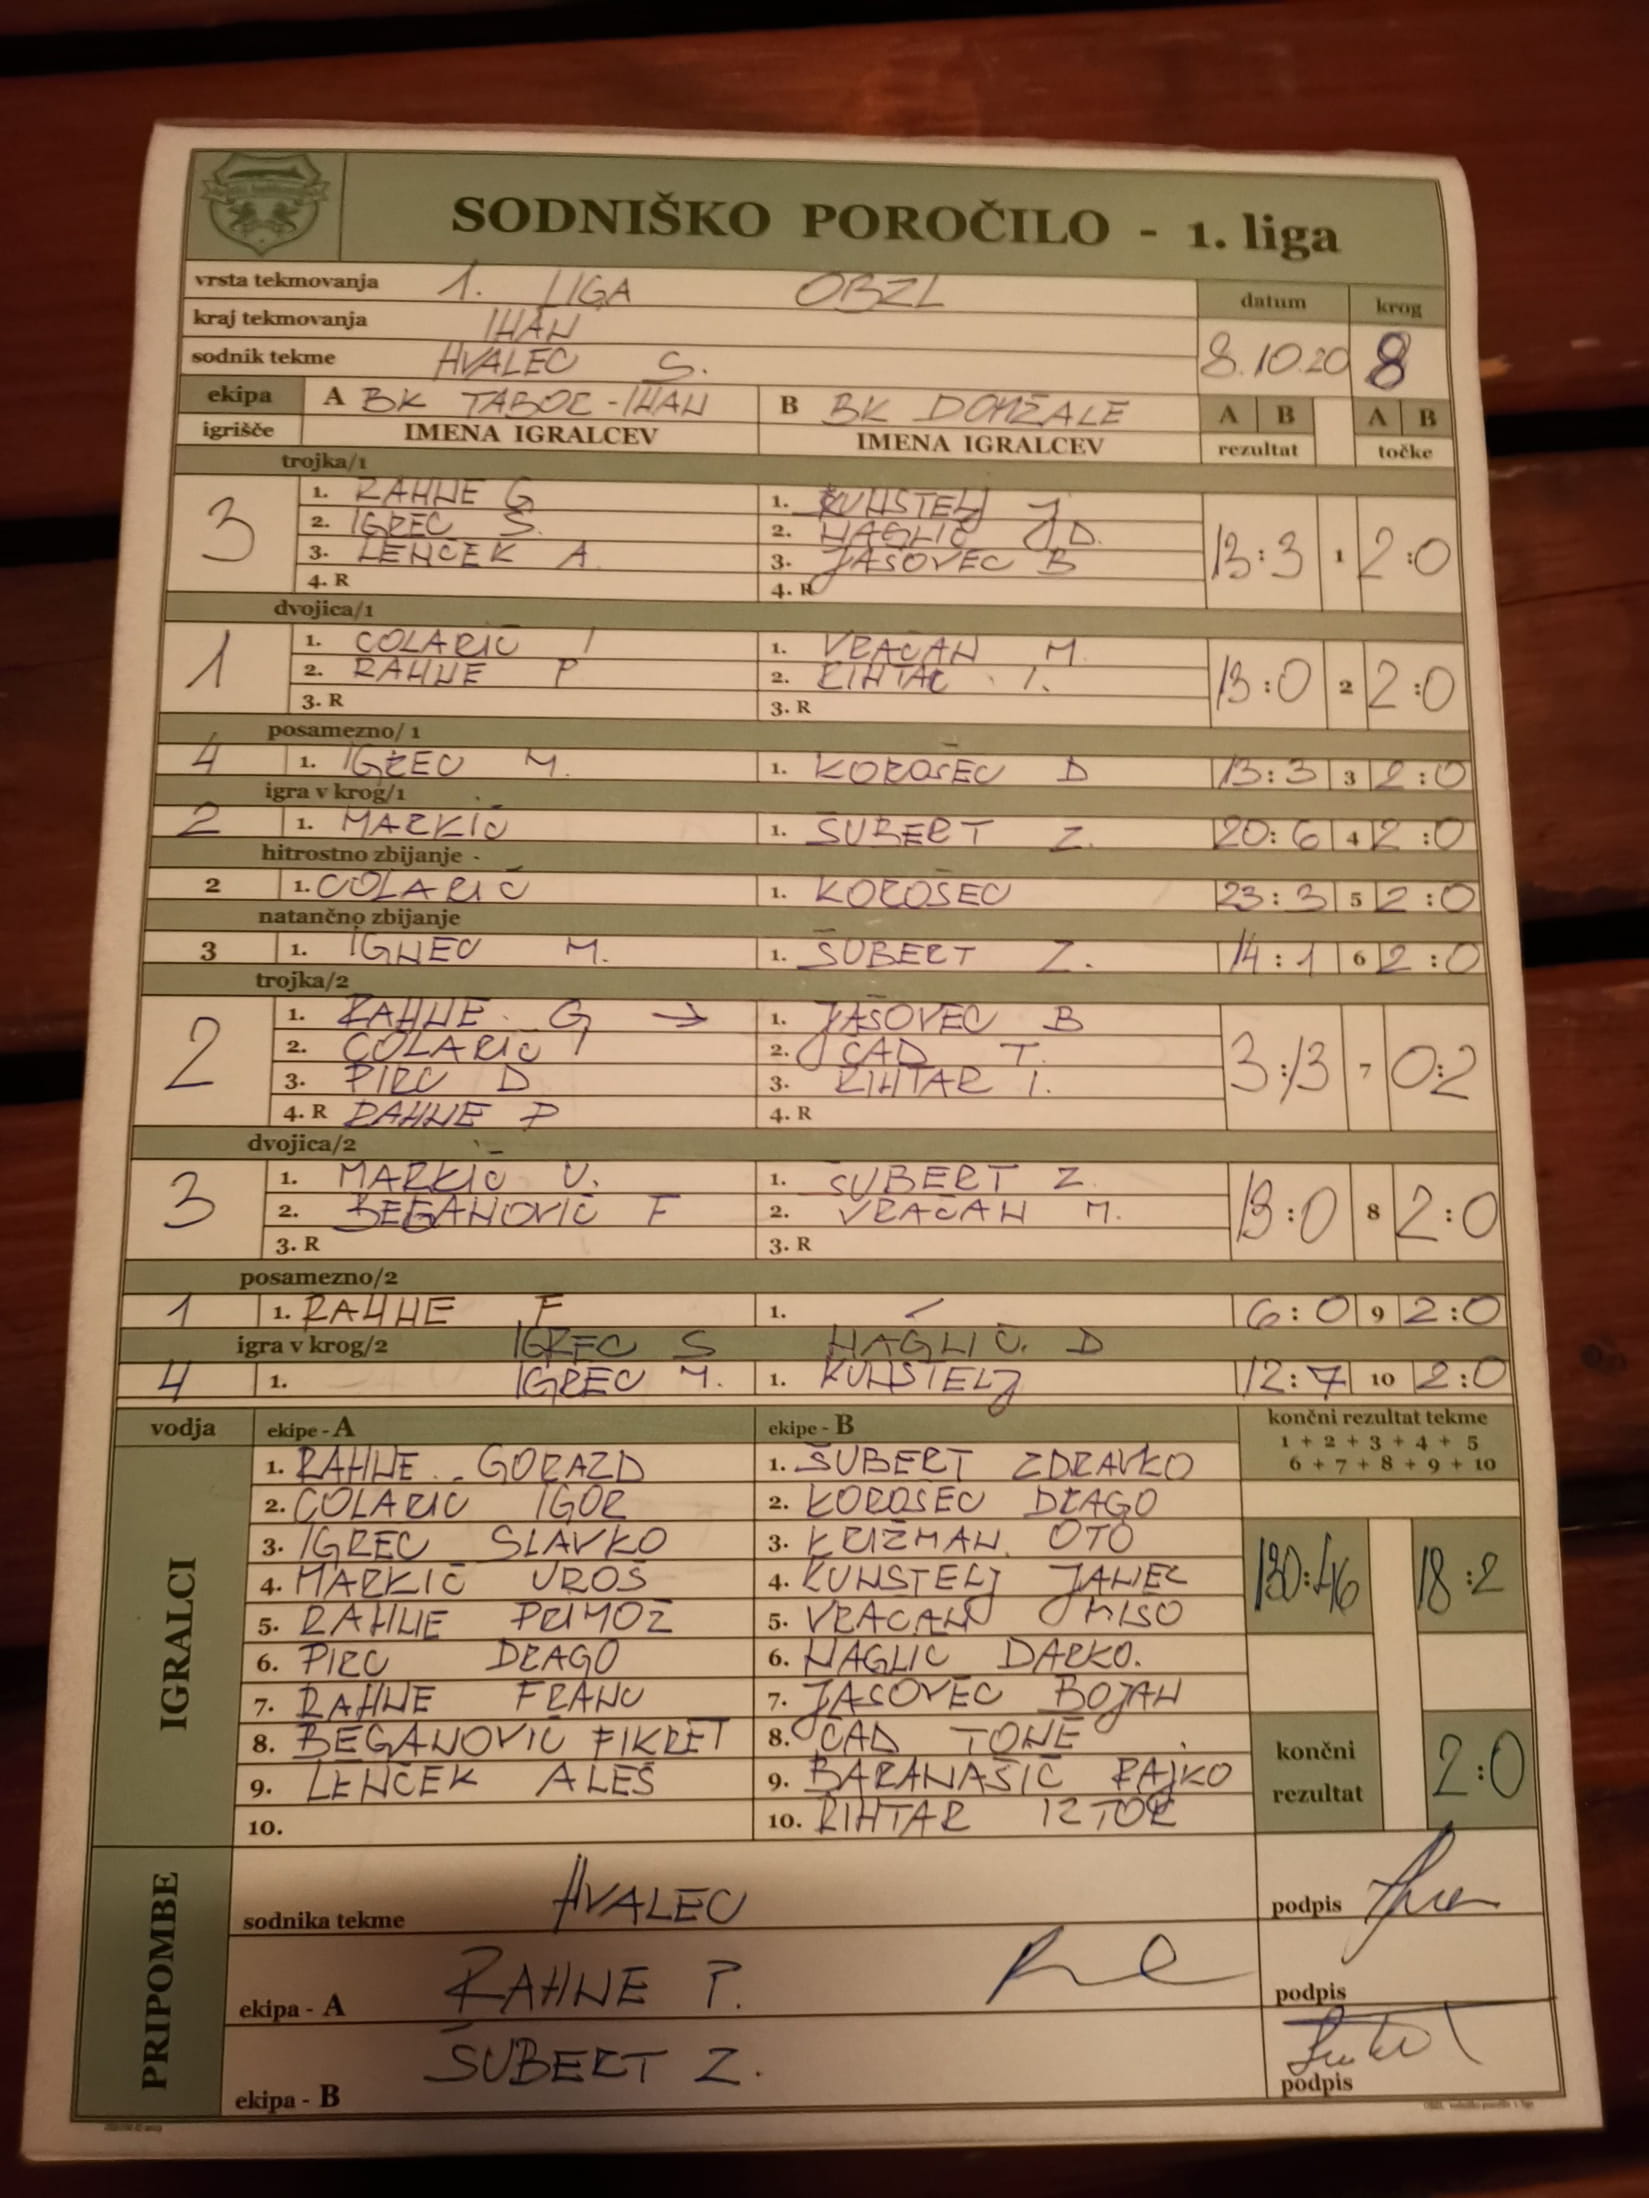 SODNIŠKO POROČILO - 1. liga
vrsta tekmovanja 1. LIGA OBZL datum krog
kraj tekmovanja IHAN
sodnik tekme HVALEC S. 8.10.20 8
ekipa A BK TABOR-IHAN B BK DOMŽALE A B A B
igrišče IMENA IGRALCEV IMENA IGRALCEV rezultat točke
trojka/1
3 1. RAHNE G 1. KUNSTELJ J 13:3 1 2:0
2. IGREC S. 2. HAGLIČ D.
3. LENČEK A. 3. JASOVEC B
4. R 4. R
dvojica/1
1 1. COLARIČ I 1. VRAČAN M. 13:0 2 2:0
2. RAHNE P 2. RIHTAR I.
3. R 3. R
posamezno/ 1
4 1. IGREC M. 1. KOROŠEC D 13:3 3 2:0
igra v krog/1
2 1. MARKIČ 1. ŠUBERT Z. 20:6 4 2:0
hitrostno zbijanje
2 1. COLARIČ 1. KOROŠEC 23:3 5 2:0
natančno zbijanje
3 1. IGREC M. 1. ŠUBERT Z. 14:1 6 2:0
trojka/2
2 1. RAHNE G → 1. JAŠOVEC B 3:13 7 0:2
2. COLARIČ I 2. ČAD T.
3. PIRC D 3. RIHTAR I.
4. R RAHNE P 4. R
dvojica/2
3 1. MARKIČ U. 1. ŠUBERT Z. 13:0 8 2:0
2. BEGANOVIČ F 2. VRAČAN M.
3. R 3. R
posamezno/2
1 1. RAHNE F 1. / 6:0 9 2:0
igra v krog/2 IGREC S HAGLIČ. D
4 1. IGREC M. 1. KUNSTELJ 12:7 10 2:0
vodja ekipe - A ekipe - B končni rezultat tekme
1 + 2 + 3 + 4 + 5
6 + 7 + 8 + 9 + 10
IGRALCI
1. RAHNE GORAZD 1. ŠUBERT ZDRAVKO
2. COLARIC IGOR 2. KOROŠEC DRAGO
3. IGREC SLAVKO 3. KRIŽMAN OTO
4. MARKIČ UROŠ 4. KUNSTELJ JANEZ 130:46 18:2
5. RAHNE PRIMOŽ 5. VRACAN MISO
6. PIRC DRAGO 6. HAGLIC DARKO.
7. RAHNE FRANC 7. JASOVEC BOJAN
8. BEGANOVIC FIKRET 8. ČAD TONE končni
9. LENČEK ALEŠ 9. BARANAŠIČ RAJKO rezultat 2:0
10. 10. RIHTAR IZTOK
PRIPOMBE
sodnika tekme HVALEC podpis
ekipa - A RAHNE P. podpis
ekipa - B ŠUBERT Z. podpis